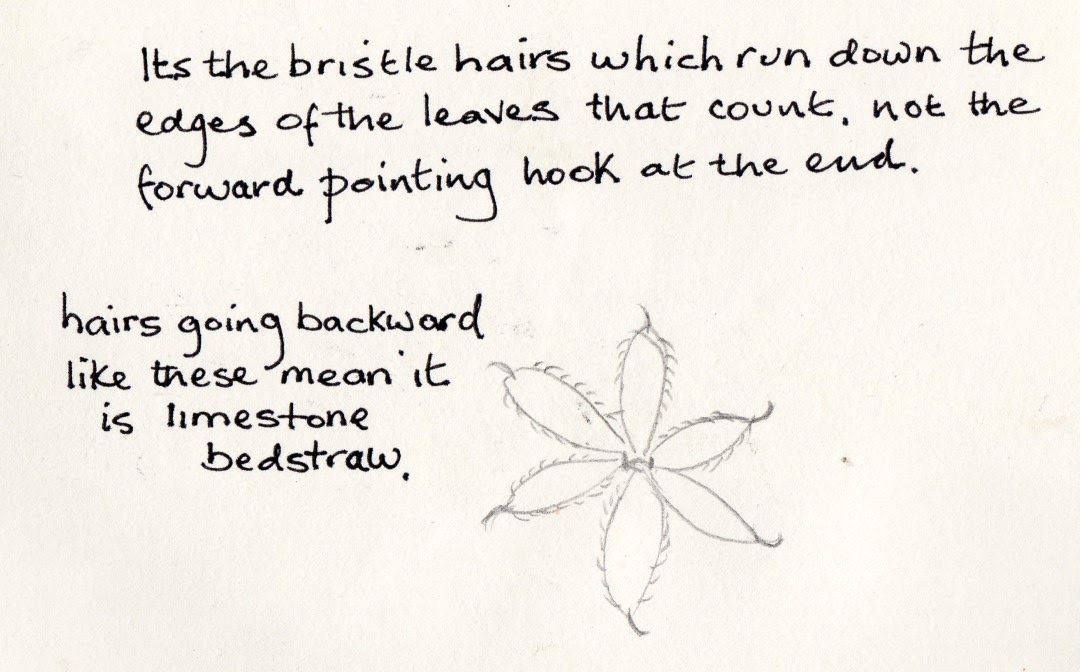 Its the bristle hairs which run down the
edges of the leaves that count, not the
forward pointing hook at the end.
hairs going backward
like these mean it
is limestone
bedstraw.